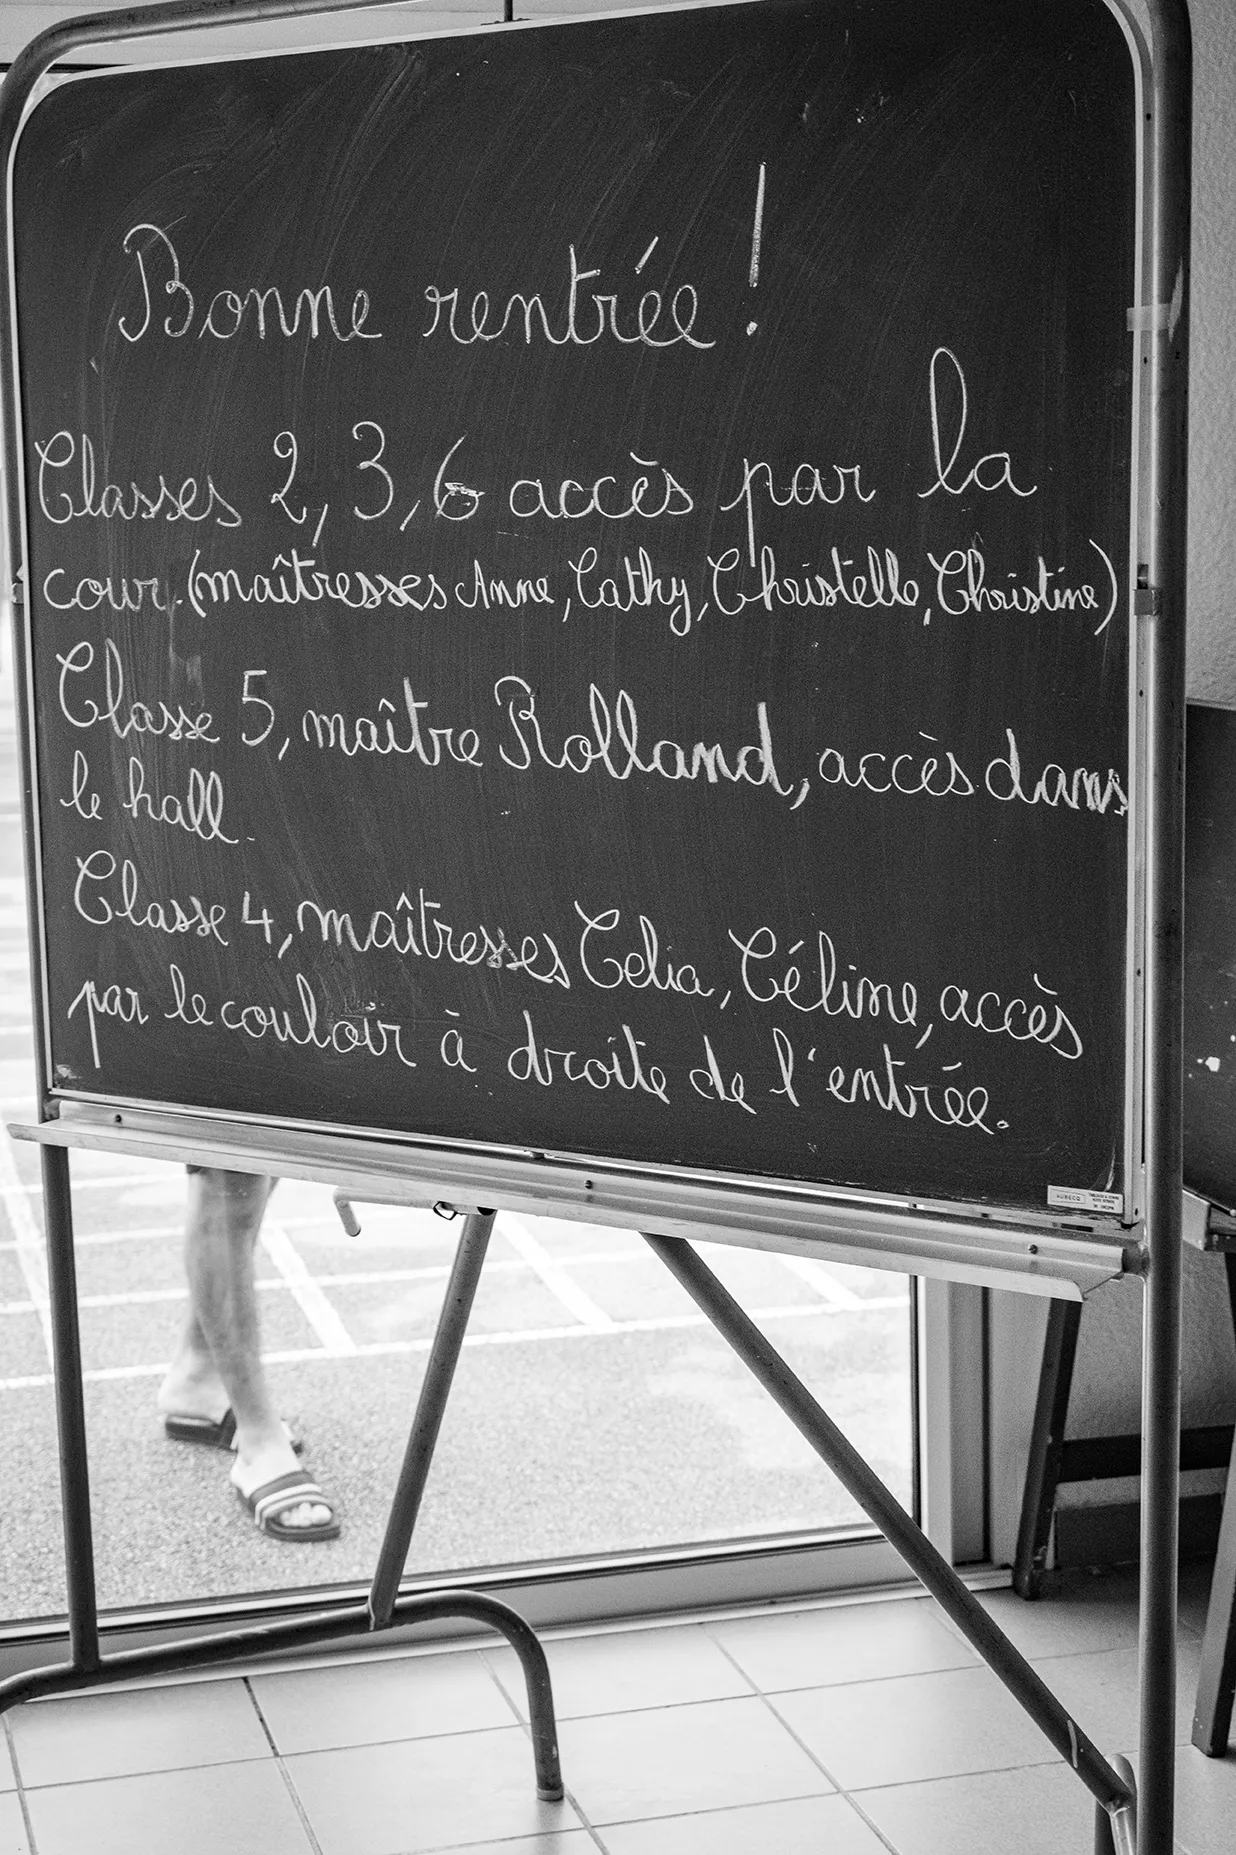 Bonne rentrée !
Classes 2, 3, 6 accès par la
cour. (maîtresses Anne, Cathy, Christelle, Christine)
Classe 5, maître Rolland, accès dans
le hall.
Classe 4, maîtresses Celia, Céline, accès
par le couloir à droite de l'entrée.